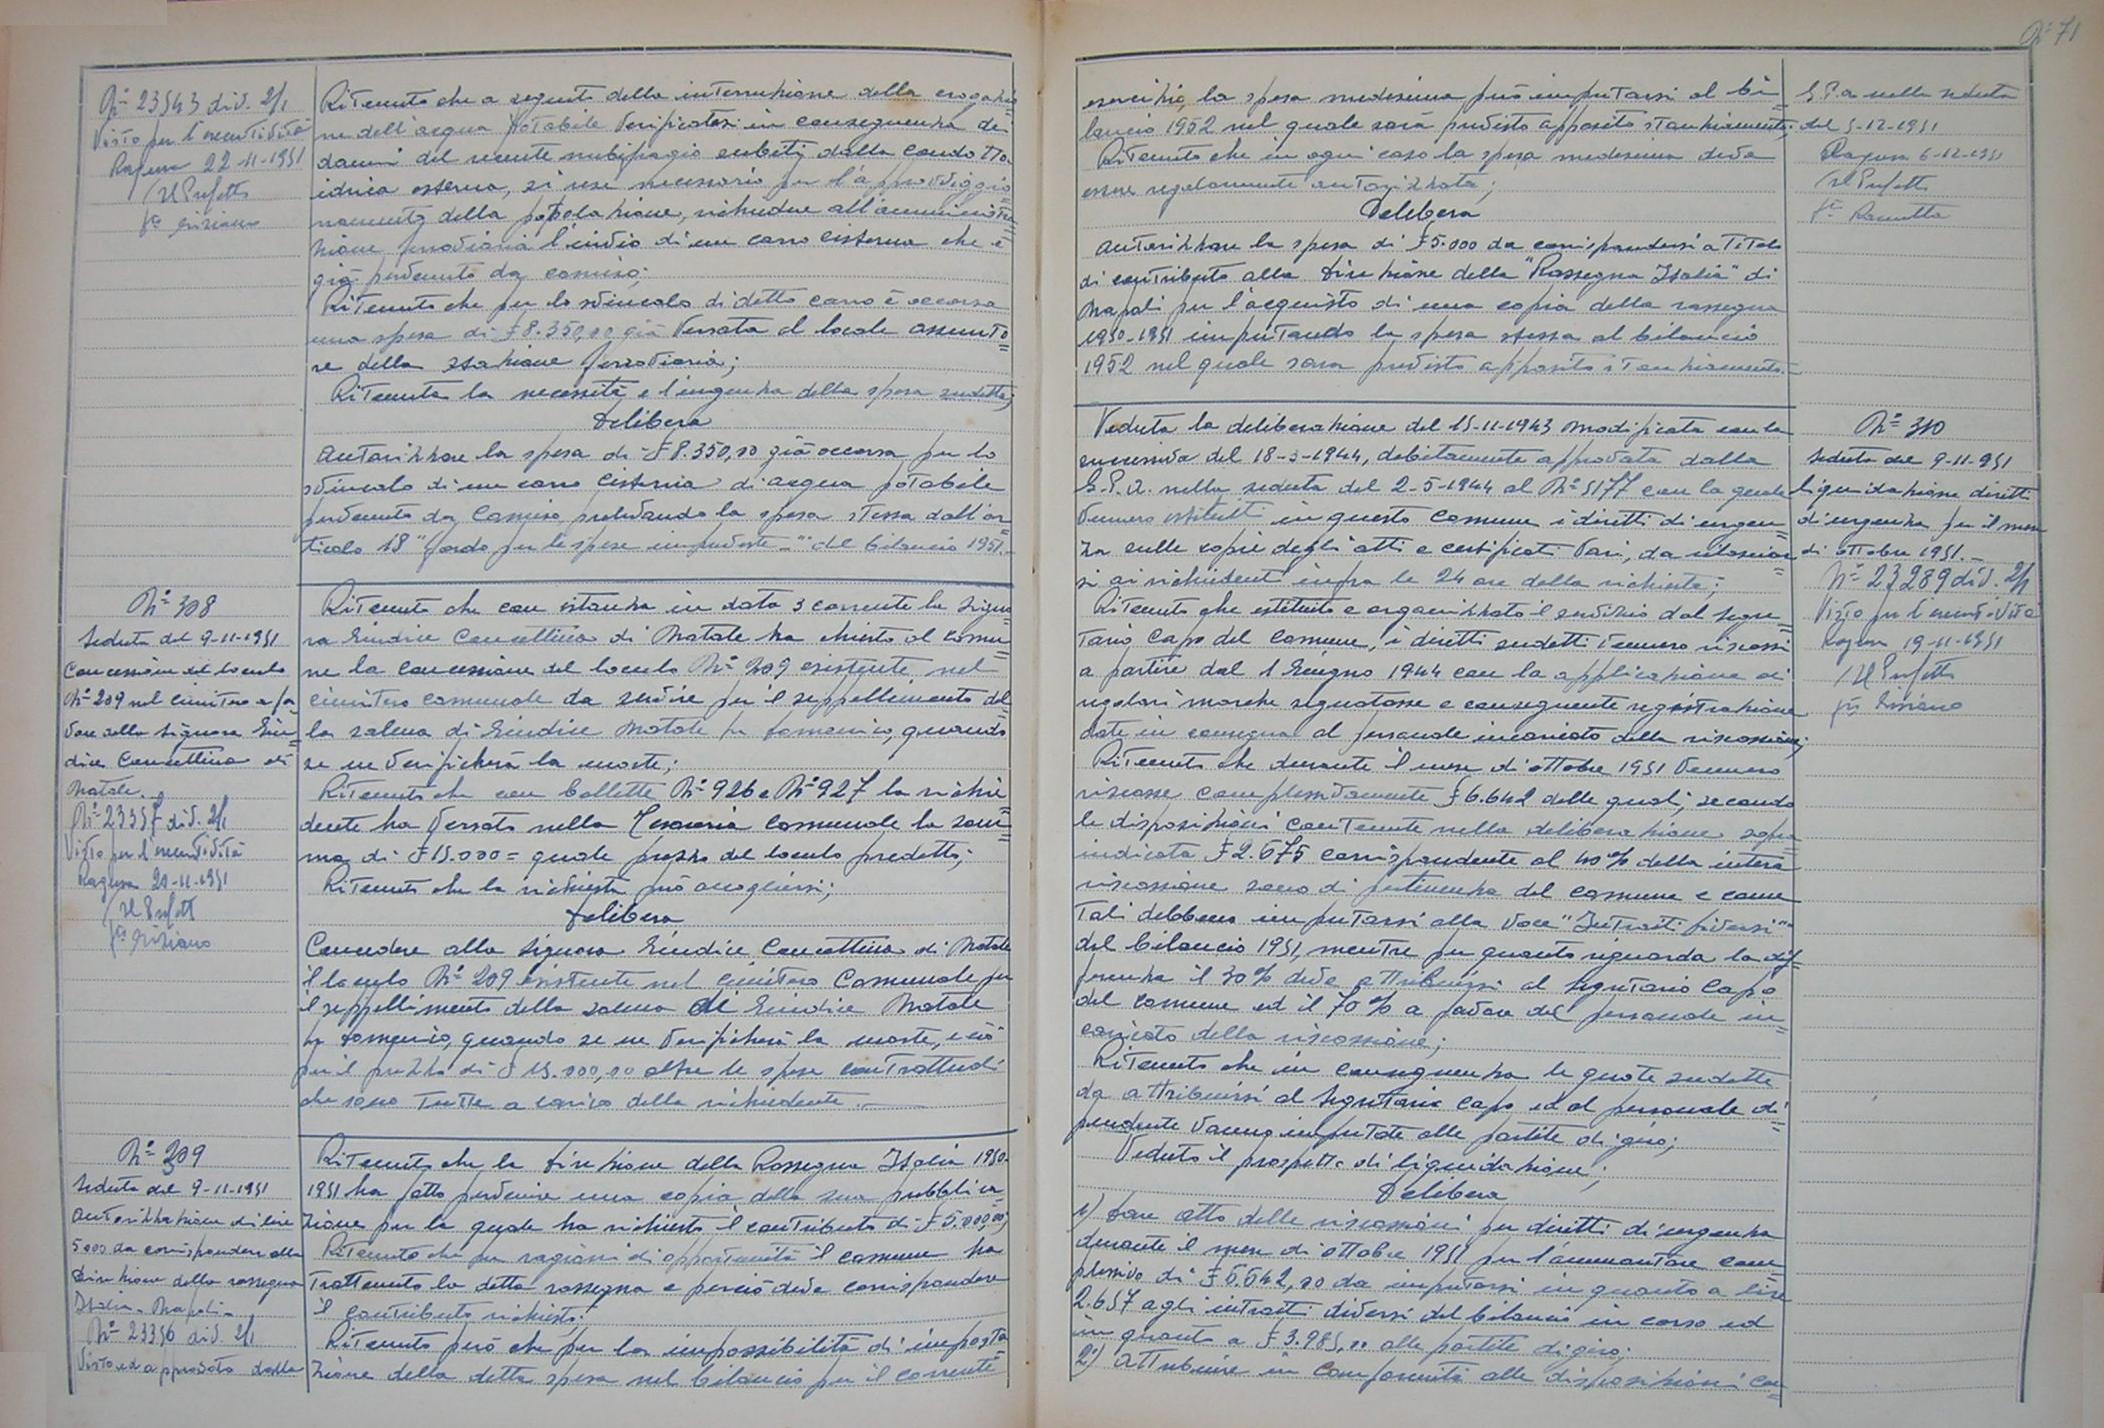 N° 71
N° 23543 div. 2/1
Visto per l'esecutività
Ragusa 22-11-1951
Il Prefetto
Ritenuto che a seguito della interruzione della erogazio=
ne dell'acqua potabile verificatasi in conseguenza dei
danni del recente nubifragio subiti dalla condotta
idrica esterna, si rese necessario per l'approvviggio=
namento della popolazione, richiedere all'amministra=
zione ferroviaria l'invio di un carro cisterna che è
già pervenuto da Comiso;
Ritenuto che per lo svincolo di detto carro è occorsa
una spesa di £ 8.350,00 già versata al locale assunto=
re della stazione ferroviaria;
Ritenuta la necessità e l'urgenza della spesa sudetta;
Delibera
Autorizzare la spesa di £ 8.350,00 già occorsa per lo
svincolo di un carro cisterna di acqua potabile
pervenuto da Comiso, prelevando la spesa stessa dall'ar=
ticolo 18 "fondo per le spese impreviste" del bilancio 1951.
N° 308
Seduta del 9-11-1951
Concessione del loculo
N° 209 nel cimitero a fa=
vore della Signora Giu=
dice Concettina di
Natale.
N° 23357 div. 2/1
Visto per l'esecutività
Ragusa 20-11-1951
Il Prefetto
Ritenuto che con istanza in data 3 corrente la Signo=
ra Giudice Concettina di Natale ha chiesto al comu=
ne la concessione del loculo N° 209 esistente nel
cimitero comunale da servire per il seppellimento del=
la salma di Giudice Natale fu Domenico, quando
se ne verificherà la morte;
Ritenuto che con bollette N° 926 e N° 927 la richie=
dente ha versato nella Tesoreria Comunale la som=
ma di £ 15.000= quale prezzo del loculo predetto;
Ritenuto che la richiesta può accogliersi;
Delibera
Concedere alla Signora Giudice Concettina di Natale
il loculo N° 209 esistente nel cimitero Comunale per
il seppellimento della salma di Giudice Natale
fu Domenico, quando se ne verificherà la morte, e ciò
per il prezzo di £ 15.000,00 oltre le spese contrattuali
che sono tutte a carico della richiedente.
N° 309
Seduta del 9-11-1951
Autorizzazione di lire
5000 da corrispondere alla
Direzione della rassegna
Italia - Napoli -
N° 23356 div. 2/1
Visto ed approvato dalla
Ritenuto che la Direzione della Rassegna Italia 1950-
1951 ha fatto pervenire una copia della sua pubblica=
zione per la quale ha richiesto il contributo di £ 5.000,00;
Ritenuto che per ragioni di opportunità il comune ha
trattenuto la detta rassegna e perciò deve corrispondere
il contributo richiesto;
Ritenuto però che per la impossibilità di imposta=
zione della detta spesa nel bilancio per il corrente
esercizio, la spesa medesima può imputarsi al bi=
lancio 1952 nel quale sarà previsto apposito stanziamento;
Ritenuto che in ogni caso la spesa medesima deve
essere regolarmente autorizzata;
Delibera
Autorizzare la spesa di £ 5.000 da corrispondersi a titolo
di contributo alla Direzione della "Rassegna Italia" di
Napoli per l'acquisto di una copia della rassegna
1950-1951 imputando la spesa stessa al bilancio
1952 nel quale sarà previsto apposito stanziamento.
G.P.A. nella seduta
del 5-12-1951
Ragusa 6-12-1951
Il Prefetto
N° 310
Seduta del 9-11-951
Liquidazione diritti
d'urgenza per il mese
di ottobre 1951.-
N° 23289 div. 2/1
Visto per l'esecutività
Ragusa 19-11-1951
Il Prefetto
Veduta la deliberazione del 15-11-1943 modificata con la
successiva del 18-3-1944, debitamente approvata dalla
G.P.A. nella seduta del 2-5-1944 al N° 5177 con la quale
vennero istituiti in questo Comune i diritti di urgen=
za sulle copie degli atti e certificati vari, da rilasciar=
si ai richiedenti infra le 24 ore della richiesta;
Ritenuto che istituito e organizzato il servizio dal Segre=
tario Capo del Comune, i diritti sudetti vennero riscossi
a partire dal 1 Giugno 1944 con la applicazione di
regolari marche segnatasse e conseguente registrazione
date in consegna al personale incaricato della riscossione;
Ritenuto che durante il mese di ottobre 1951 vennero
riscosse complessivamente £ 6.642 delle quali, secondo
le disposizioni contenute nella deliberazione sopra
indicata £ 2.675 corrispondente al 40% della intera
riscossione sono di pertinenza del comune e come
tali debbono imputarsi alla voce "Introiti diversi"
del bilancio 1951, mentre per quanto riguarda la dif=
ferenza il 30% deve attribuirsi al Segretario Capo
del Comune ed il 70% a favore del personale in=
caricato della riscossione;
Ritenuto che in conseguenza le quote sudette
da attribuirsi al Segretario Capo ed al personale di=
pendente vanno imputate alle partite di giro;
Veduto il prospetto di liquidazione;
Delibera
1) Dare atto delle riscossioni per diritti di urgenza
durante il mese di ottobre 1951 per l'ammontare com=
plessivo di £ 6.642,00 da imputarsi in quanto a lire
2.657 agli introiti diversi del bilancio in corso ed
in quanto a £ 3.985,00 alle partite di giro;
2) Attribuire in conformità alle disposizioni con=